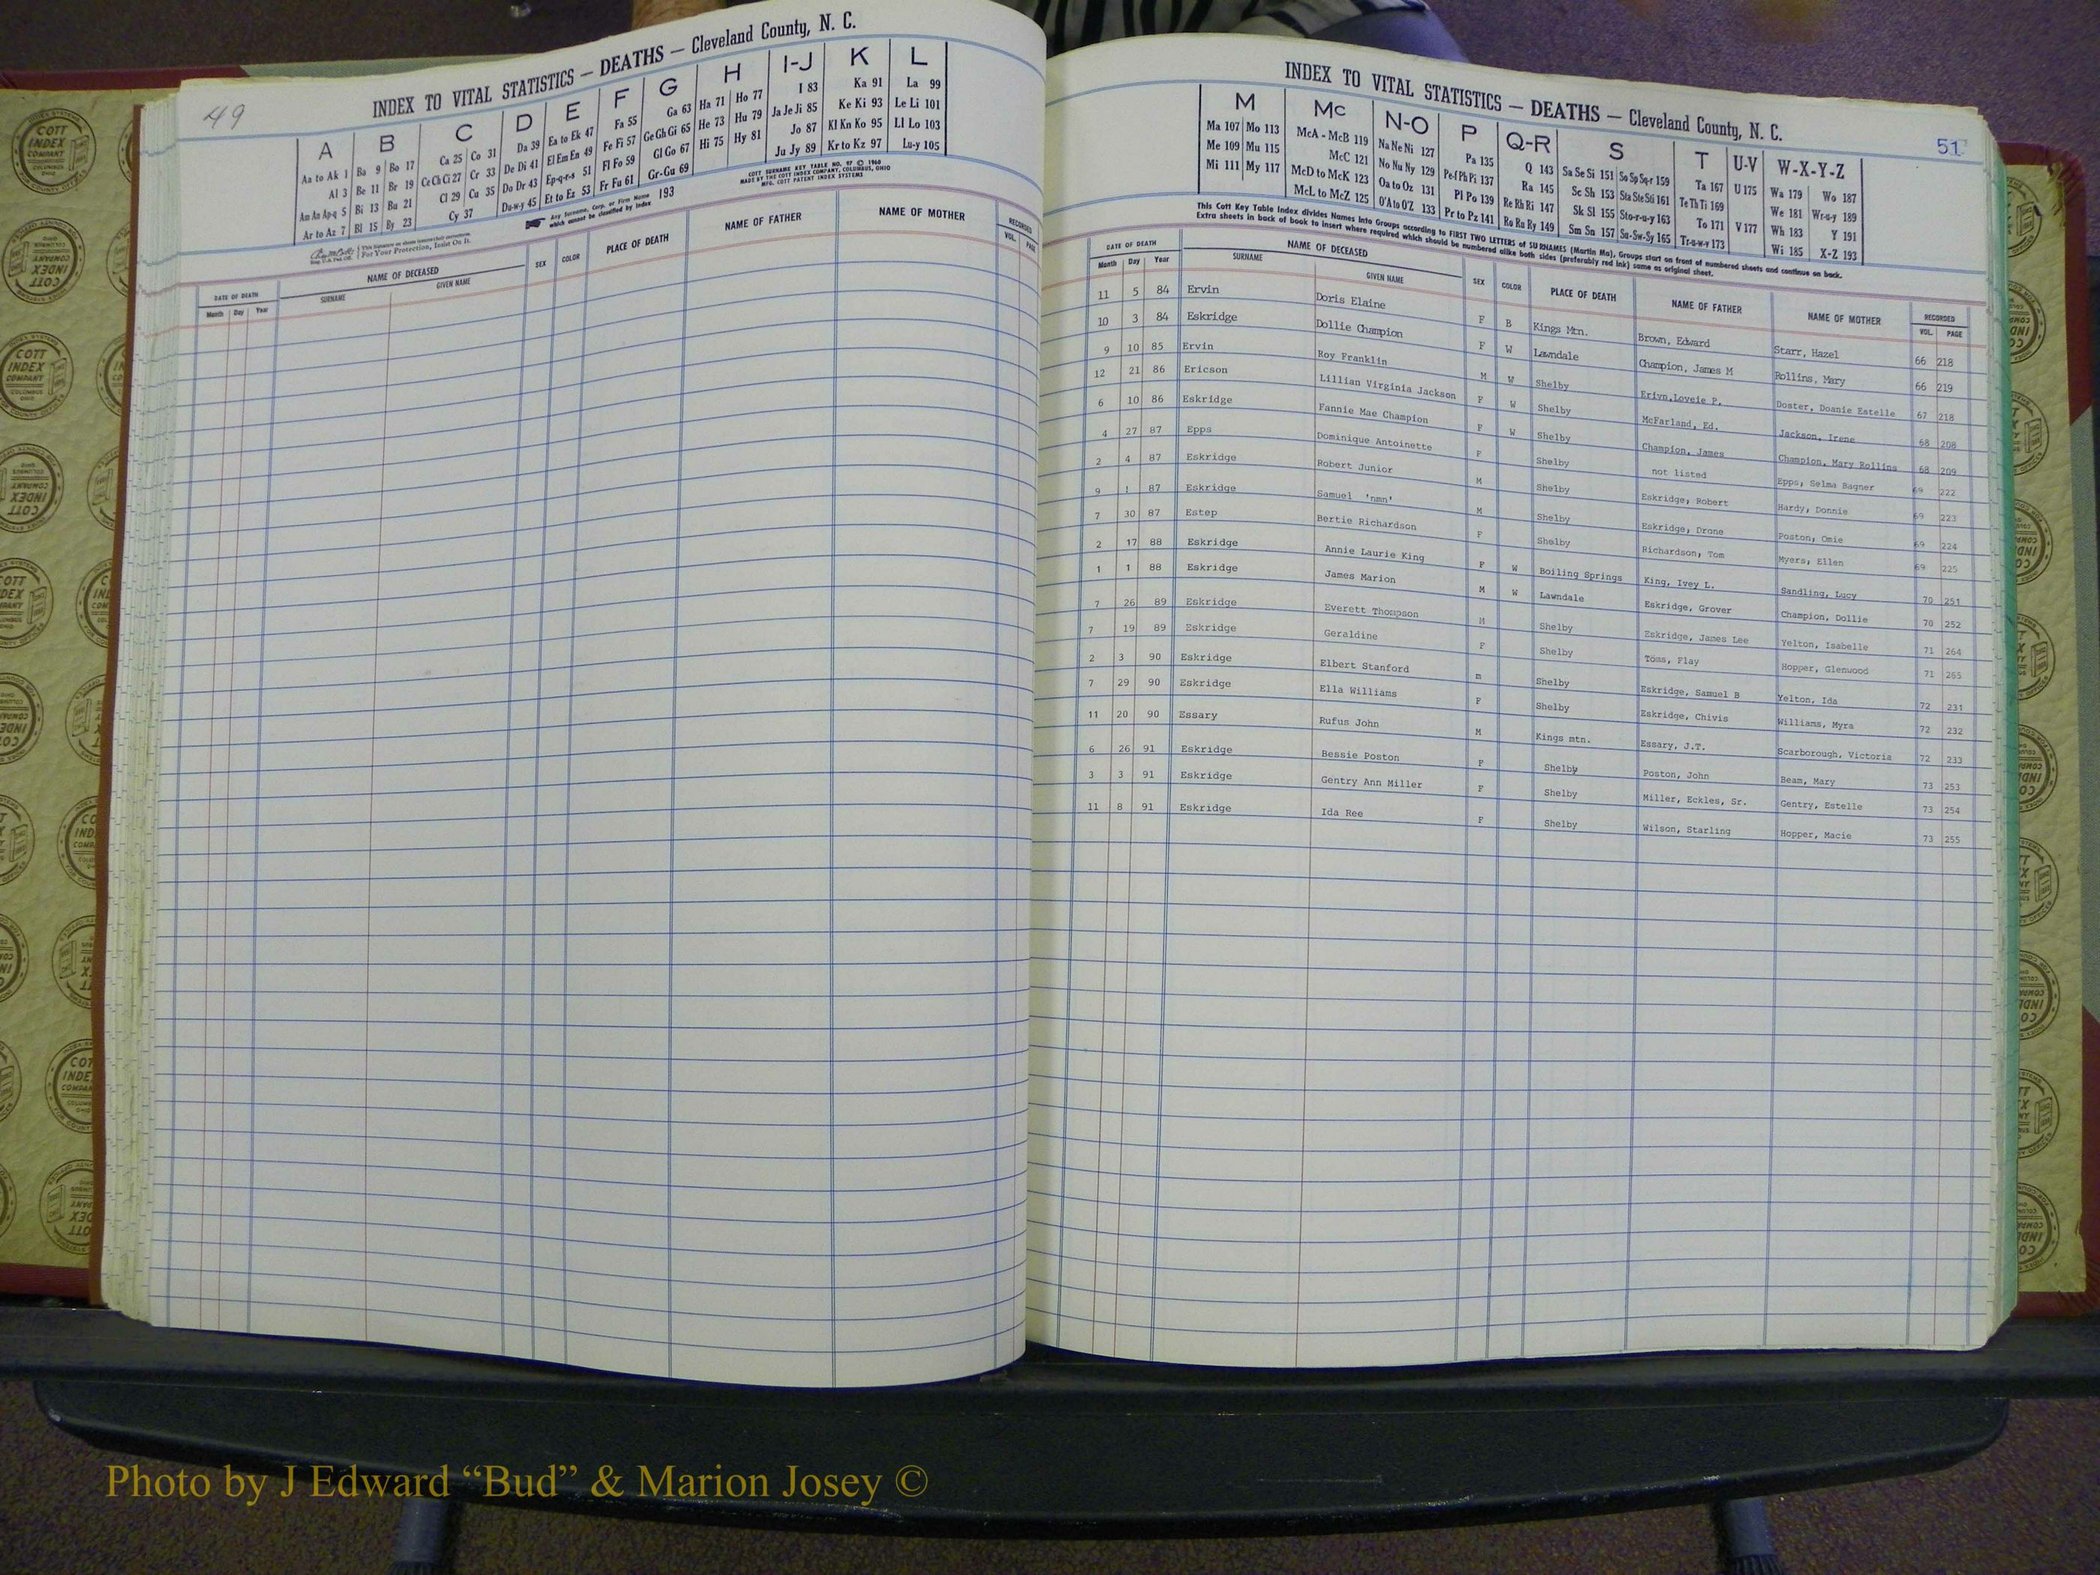 49
INDEX TO VITAL STATISTICS — DEATHS — Cleveland County, N. C.
A B C D E F G H I-J K L
Aa to Ak 1 Ba 9 Bo 17 Ca 25 Co 31 Da 39 Ea to Ek 47 Fa 55 Ga 63 Ha 71 Ho 77 I 83 Ka 91 La 99
Al 3 Be 11 Br 19 Ce Ch Ci 27 Cr 33 De Di 41 El Em En 49 Fe Fi 57 Ge Gh Gi 65 He 73 Hu 79 Ja Je Ji 85 Ke Ki 93 Le Li 101
Am An Ap-q 5 Bi 13 Bu 21 Cl 29 Cu 35 Do Dr 43 Ep-q-r-s 51 Fl Fo 59 Gl Go 67 Hi 75 Hy 81 Jo 87 Kl Kn Ko 95 Ll Lo 103
Ar to Az 7 Bl 15 By 23 Cy 37 Du-w-y 45 Et to Ez 53 Fr Fu 61 Gr-Gu 69 Ju Jy 89 Kr to Kz 97 Lu-y 105
COTT SURNAME KEY TABLE NO. 97 © 1960
MADE BY THE COTT INDEX COMPANY, COLUMBUS, OHIO
MFG. COTT PATENT INDEX SYSTEMS
Any Surname, Corp. or Firm Name which cannot be classified by Index 193
For Your Protection, Insist On It.
DATE OF DEATH NAME OF DECEASED SEX COLOR PLACE OF DEATH NAME OF FATHER NAME OF MOTHER RECORDED
Month Day Year SURNAME GIVEN NAME VOL. PAGE
51
INDEX TO VITAL STATISTICS — DEATHS — Cleveland County, N. C.
M Mc N-O P Q-R S T U-V W-X-Y-Z
Ma 107 Mo 113 McA - McB 119 Na Ne Ni 127 Pa 135 Q 143 Sa Se Si 151 So Sp Sq-r 159 Ta 167 U 175 Wa 179 Wo 187
Me 109 Mu 115 McC 121 No Nu Ny 129 Pe-f Ph Pi 137 Ra 145 Sc Sh 153 Sta Ste Sti 161 Te Th Ti 169 V 177 We 181 Wr-u-y 189
Mi 111 My 117 McD to McK 123 Oa to Oz 131 Pl Po 139 Re Rh Ri 147 Sk Sl 155 Sto-r-u-y 163 To 171 Wh 183 Y 191
McL to McZ 125 O'A to O'Z 133 Pr to Pz 141 Ro Ru Ry 149 Sm Sn 157 Su-Sw-Sy 165 Tr-u-w-y 173 Wi 185 X-Z 193
This Cott Key Table Index divides Names into Groups according to FIRST TWO LETTERS of SURNAMES (Martin Ma), Groups start on front of numbered sheets and continue on back.
Extra sheets in back of book to insert where required which should be numbered alike both sides (preferably red ink) same as original sheet.
DATE OF DEATH NAME OF DECEASED SEX COLOR PLACE OF DEATH NAME OF FATHER NAME OF MOTHER RECORDED
Month Day Year SURNAME GIVEN NAME VOL. PAGE
11 5 84 Ervin Doris Elaine F B Kings Mtn. Brown, Edward Starr, Hazel 66 218
10 3 84 Eskridge Dollie Champion F W Lawndale Champion, James M Rollins, Mary 66 219
9 10 85 Ervin Roy Franklin M W Shelby Erivn,Loveie P. Doster, Doanie Estelle 67 218
12 21 86 Ericson Lillian Virginia Jackson F W Shelby McFarland, Ed. Jackson, Irene 68 208
6 10 86 Eskridge Fannie Mae Champion F W Shelby Champion, James Champion, Mary Rollins 68 209
4 27 87 Epps Dominique Antoinette F Shelby not listed Epps, Selma Bagner 69 222
2 4 87 Eskridge Robert Junior M Shelby Eskridge, Robert Hardy, Donnie 69 223
9 1 87 Eskridge Samuel 'nmn' M Shelby Eskridge, Drone Poston, Omie 69 224
7 30 87 Estep Bertie Richardson F Shelby Richardson, Tom Myers, Ellen 69 225
2 17 88 Eskridge Annie Laurie King F W Boiling Springs King, Ivey L. Sandling, Lucy 70 251
1 1 88 Eskridge James Marion M W Lawndale Eskridge, Grover Champion, Dollie 70 252
7 26 89 Eskridge Everett Thompson M Shelby Eskridge, James Lee Yelton, Isabelle 71 264
7 19 89 Eskridge Geraldine F Shelby Toms, Flay Hopper, Glenwood 71 265
2 3 90 Eskridge Elbert Stanford m Shelby Eskridge, Samuel B Yelton, Ida 72 231
7 29 90 Eskridge Ella Williams F Shelby Eskridge, Chivis Williams, Myra 72 232
11 20 90 Essary Rufus John M Kings mtn. Essary, J.T. Scarborough, Victoria 72 233
6 26 91 Eskridge Bessie Poston F Shelby Poston, John Beam, Mary 73 253
3 3 91 Eskridge Gentry Ann Miller F Shelby Miller, Eckles, Sr. Gentry, Estelle 73 254
11 8 91 Eskridge Ida Ree F Shelby Wilson, Starling Hopper, Macie 73 255
COTT INDEX COMPANY COLUMBUS OHIO
Photo by J Edward “Bud” & Marion Josey ©